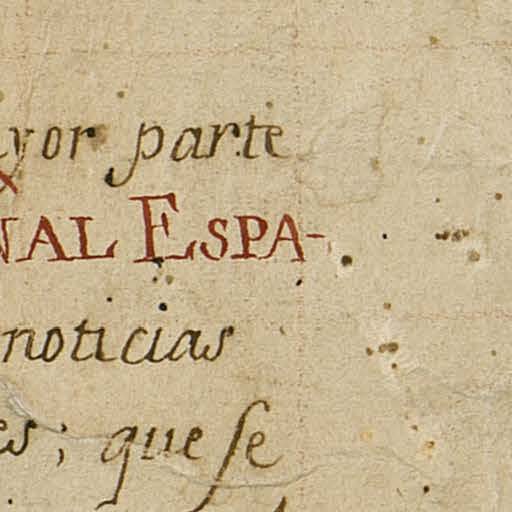 ayor parte
NAL ESPA-
noticias
es; que ſe